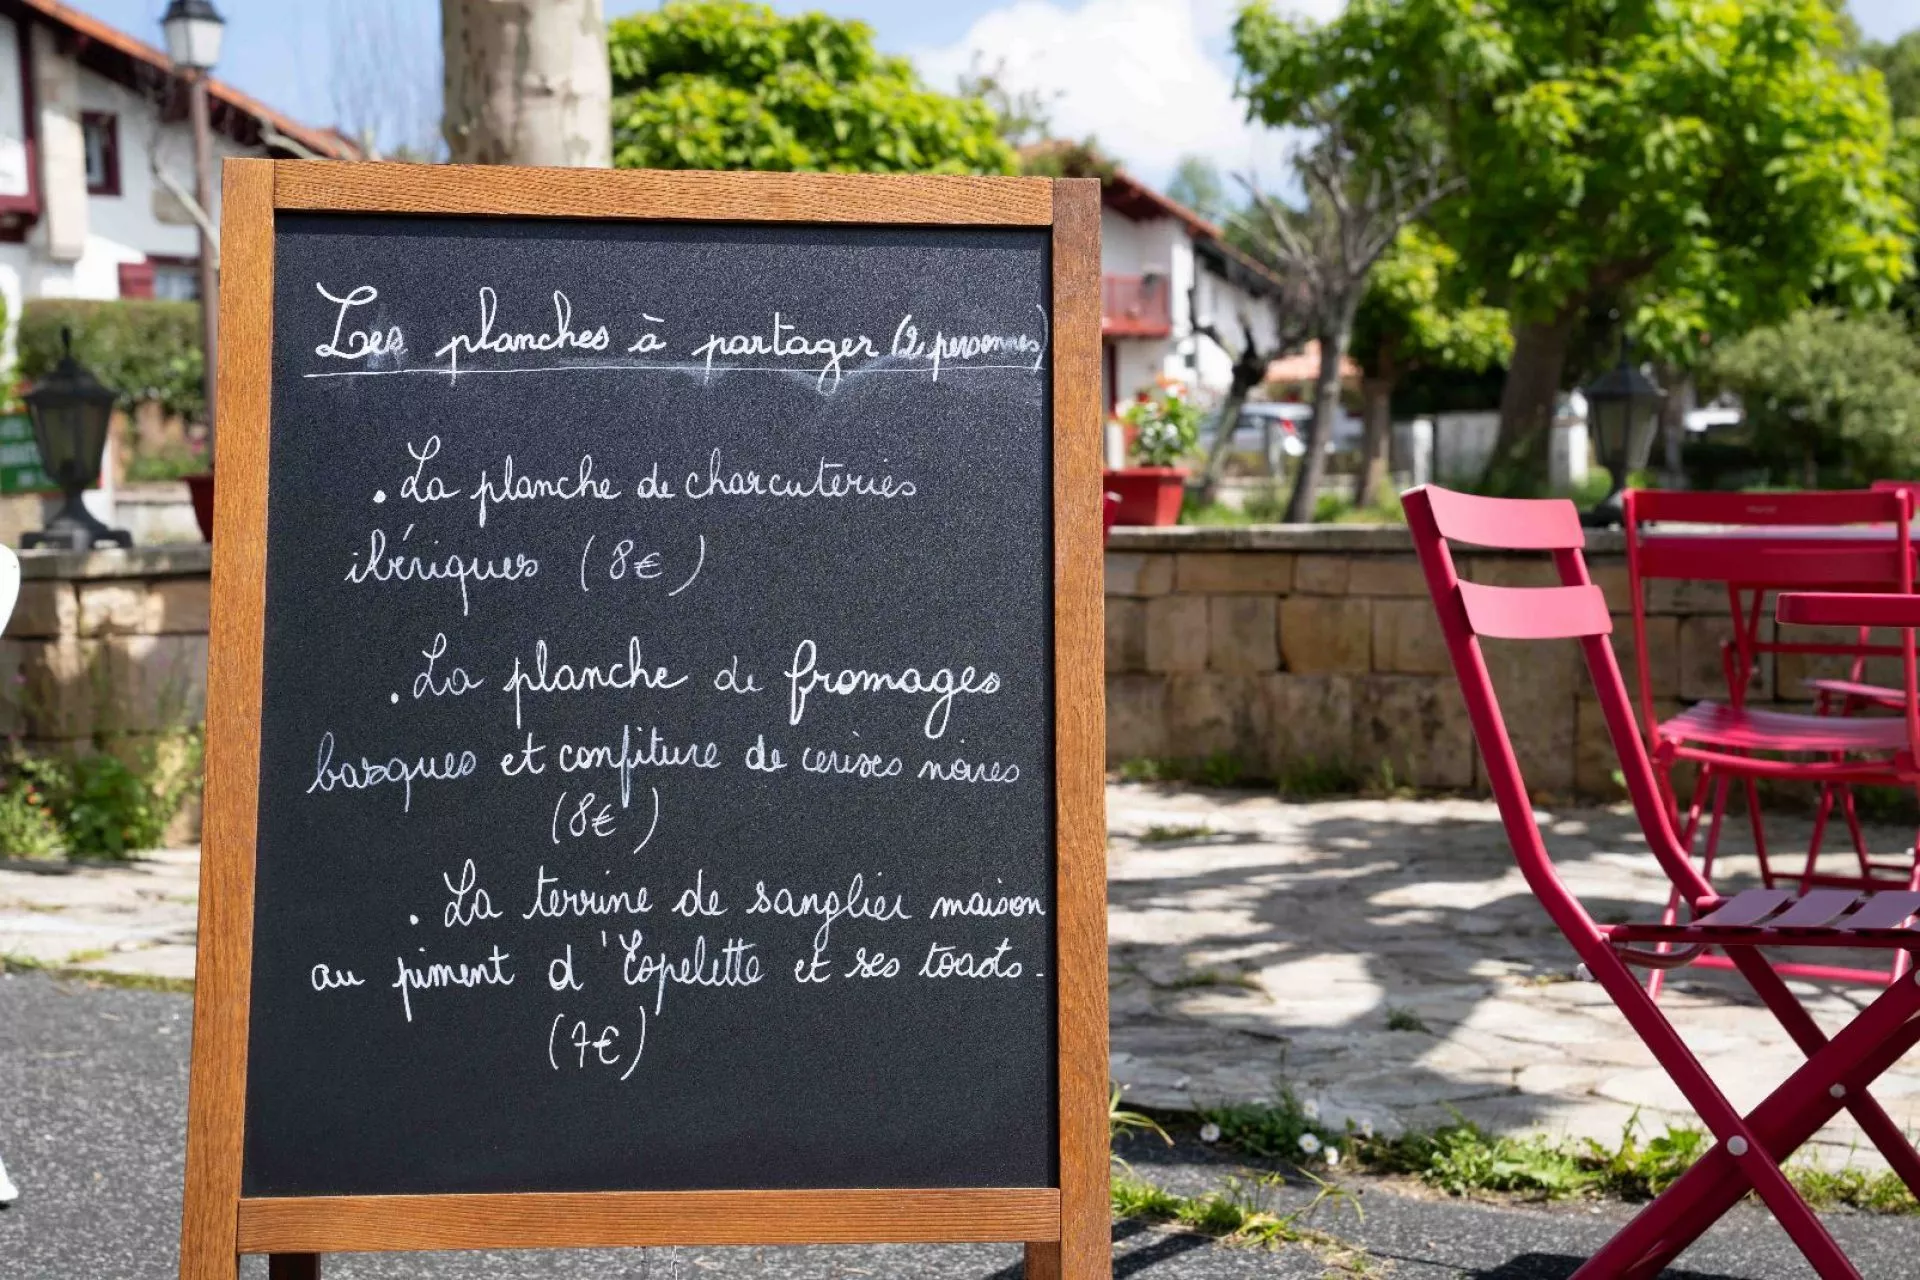 Les planches à partager (2 personnes)
. La planche de charcuteries
ibériques (8€)
. La planche de fromages
basques et confiture de cerises noires
(8€)
. La terrine de sanglier maison
au piment d'Espelette et ses toasts.
(7€)